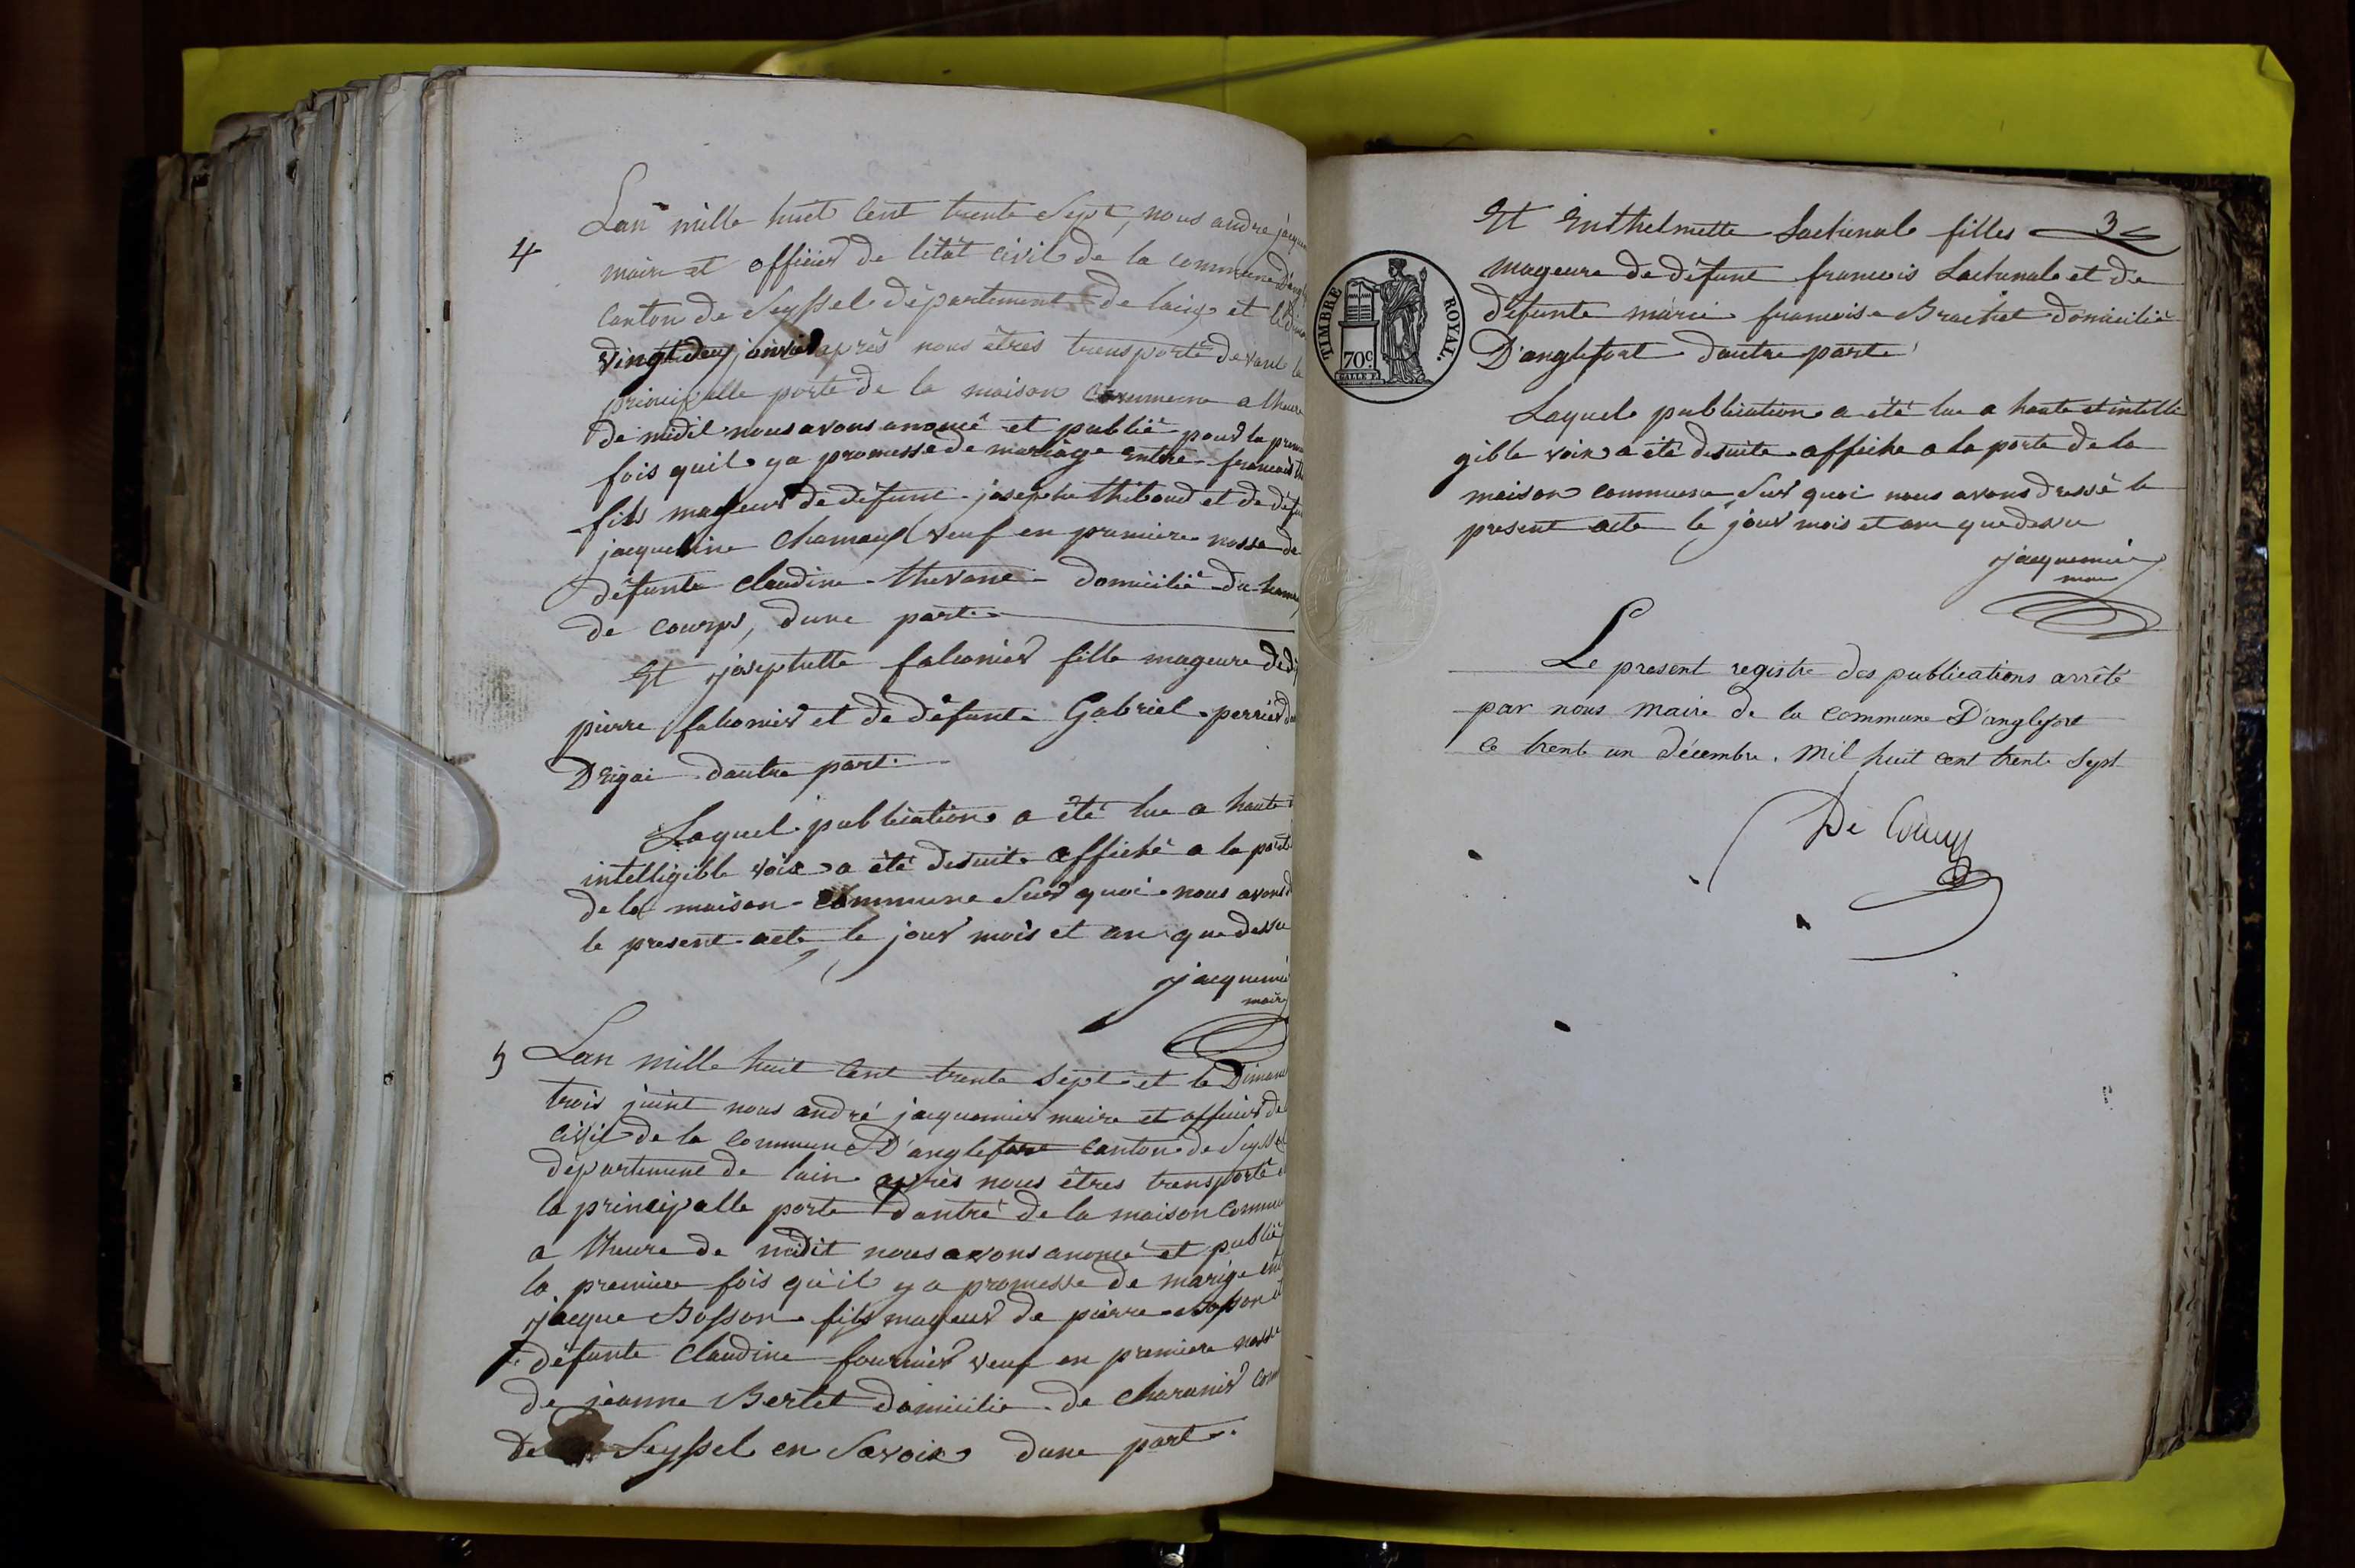 4
Lan mille huit Cent trente Sept, nous andre jacque
maire et officier de létat Civil de la commune D'angl
Canton de Seyssel département de lain et le Dima
vingt deux janvier après nous êtres transporté devant la
principalle porte de la maison commune a lheure
de midit nous avons anoncé et publié pour la premi
fois quil y a promesse de mariage entre francois th
fils mageur de défunt josephe thiboud et de défun
jacqueline Chamaud veuf en premiere nosse de
défunte Claudine thevane domicilié du hame
de courps, dune part
Et josephette falconier fille mageure de dé
pierre falconier et de défunte Gabriel perrier do
D'Eigai dautre part.
Laquel publication a été lue a haute
intelligible voix a été desuite affiché a la porte
de la maison commune Sur quoi nous avons d
le present acte le jour mois et an que dessu
jacquemi
maire
5 Lan mille huit Cent trente Sept et le Diman
trois juint nous andré jacquemier maire et officier de
civil de la commune D'anglefort Canton de Seysse
département de lain après nous êtres transporté
la principalle porte dantré de la maison Commu
a lheure de midit nous avons anoncé et publié
la premiere fois qu'il y a promesse de marige en
jacque Bosson fils mageur de pierre Bosson et
défunte Claudine fournier veuf en premiere nosse
de jeanne Bertet domicilié de Charanier Com
de Seyssel en Savoix dune part.
3
Et Enthelmette Lachenal filles
mageure de défunt francois Lachenal et de
défunte marie francoise Brachet domicilié
D'anglefort dautre part
TIMBRE ROYAL.
70c
Laquel publication a été lue a haute et intelli
gible voix a été desuite affiche a la porte de la
maison commune Sur quoi nous avons dressé le
present acte le jour mois et an que dessu
jacquemier
maire
Le present registre des publications arrêté
par nous Maire de la Commune D'anglefort
le trente un décembre. Mil huit cent trente Sept
De Coucy